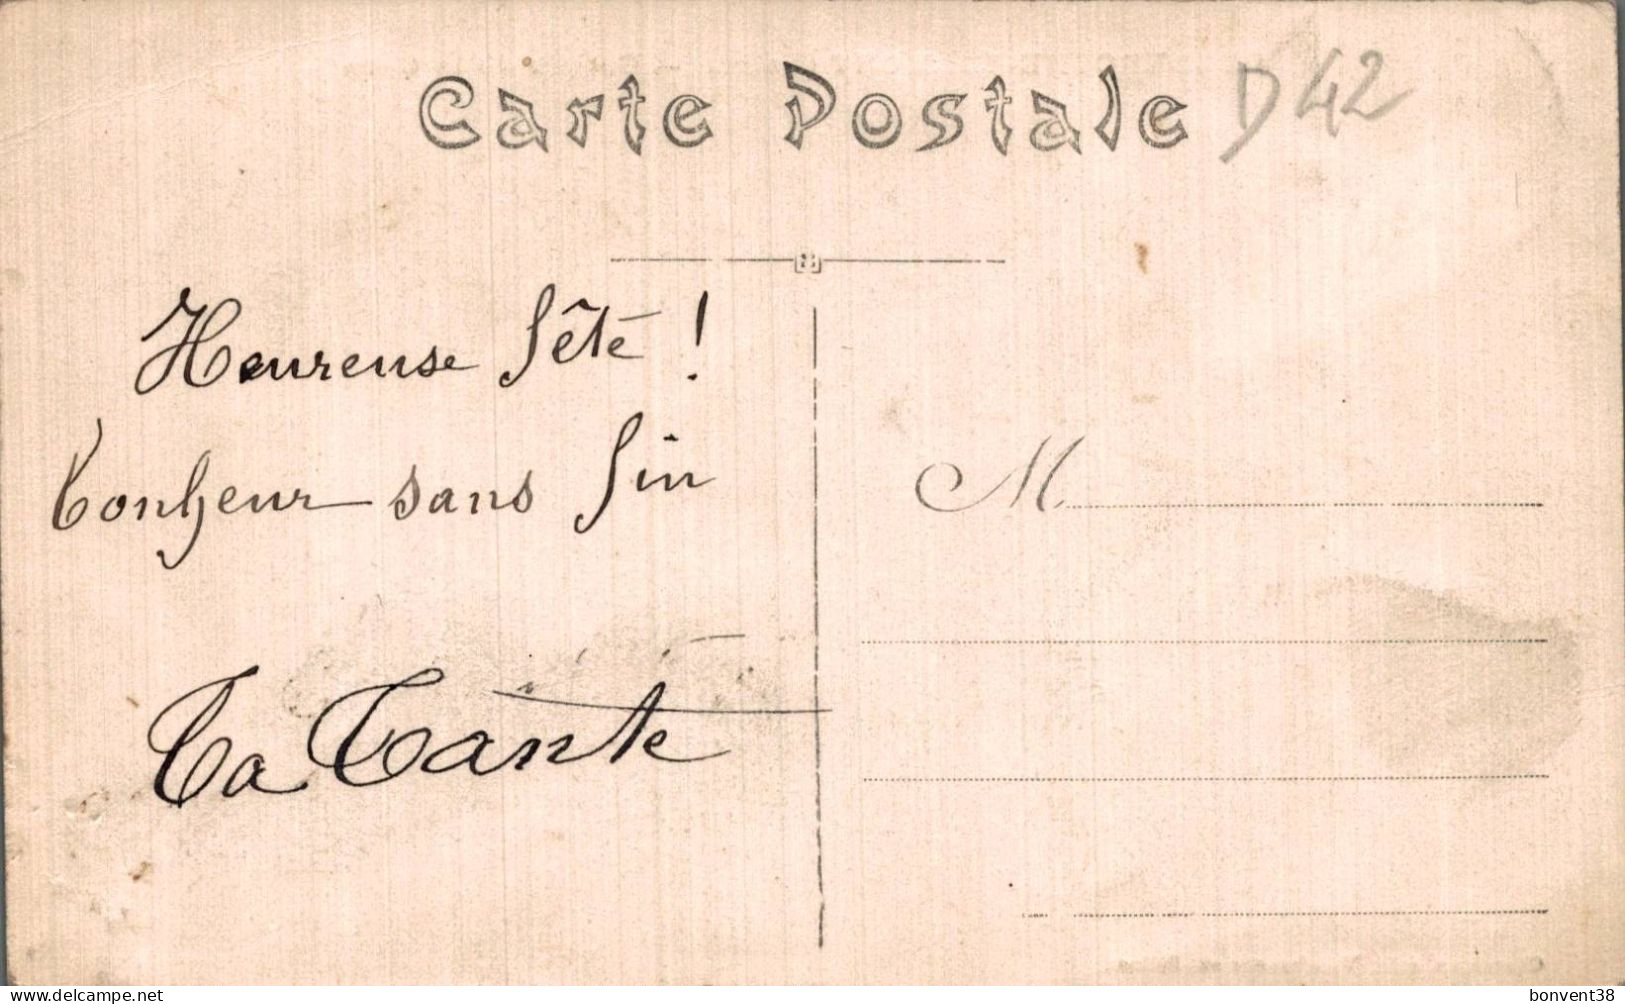 Carte Postale D42
Heureuse fête !
bonheur sans fin
Ta Tante
M
delcampe.net
bonvent38